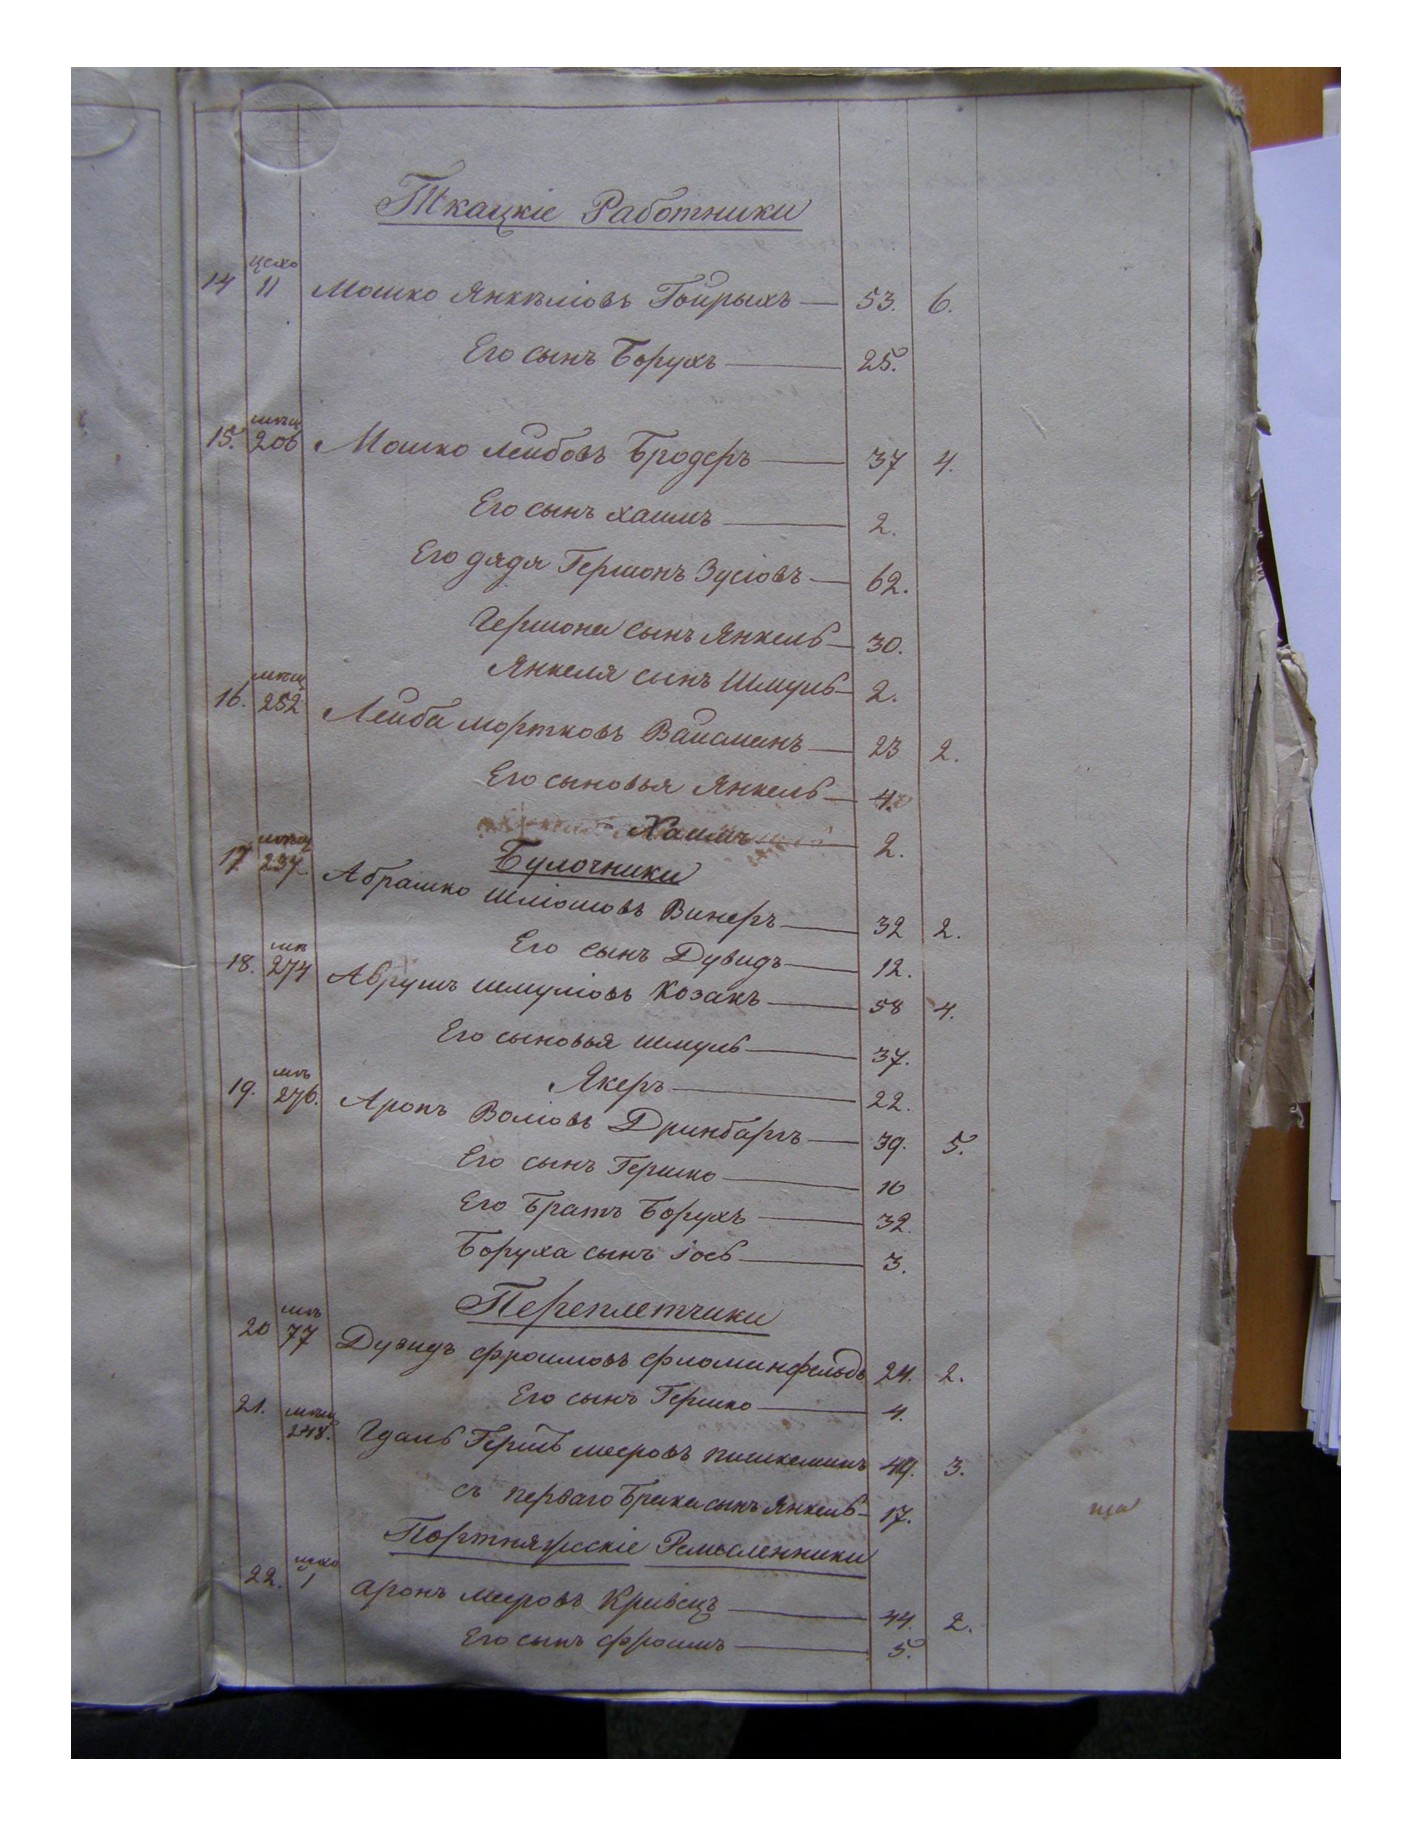 Ткацкіе Работники
14 цехо 11 Мошко Янкѣліовъ Гойрыхъ — 53. 6.
Его сынъ Борухъ — 25.
15. мѣщ 206 Мошко Лейбовъ Бродеръ — 37 4.
Его сынъ Хаимъ — 2.
Его дядя Гершонъ Зусіовъ — 62.
Гершона сынъ Янкель — 30.
Янкеля сынъ Шмуль — 2.
16. мѣщ 252 Лейба Мортковъ Вайсманъ — 23 2.
Его сыновья Янкель — 4.
Хаимъ — 2.
Булочники
17 мѣщ 237. Абрашко Шліомовъ Винеръ — 32 2.
Его сынъ Дувидъ — 12.
18. мѣ 274 Аврумъ Шмуліовъ Козакъ — 58 4.
Его сыновья Шмуль — 37.
Якеръ — 22.
19. мѣ 276. Аронъ Воліовъ Дринбаргъ — 39. 5.
Его сынъ Гершко — 10
Его Братъ Борухъ — 32.
Боруха сынъ Іось — 3.
Переплетчики
20 мѣ 77 Дувидъ Фроимовъ Фломанфельдъ 24. 2.
Его сынъ Гершко — 4.
21. мѣщ 248. Гдаль Герш Мееровъ 3.
съ перваго Брака сынъ Янкель — 17.
Портняжскіе Ремесленники
22. цехо 1 Аронъ Мееровъ Кривецъ — 44. 2.
Его сынъ Фроимъ — 5.